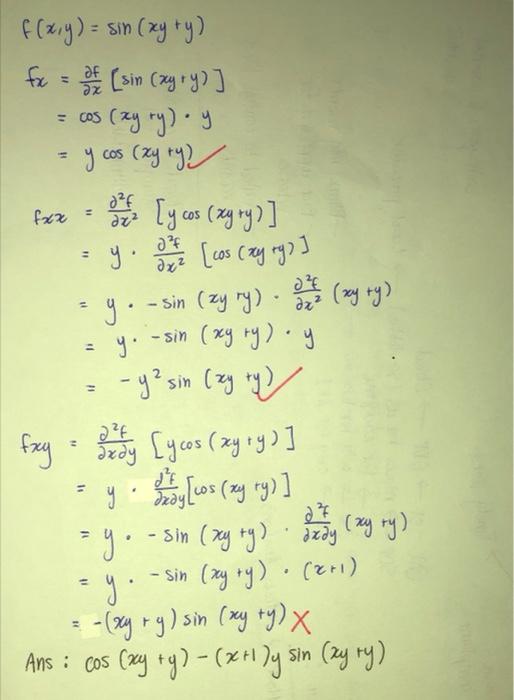 f(x,y) = sin (xy + y)
fx = ∂f/∂x [sin (xy + y)]
= cos (xy + y) • y
= y cos (xy + y) ✓
fxx = ∂²f/∂x² [y cos (xy + y)]
= y • ∂²f/∂x² [cos (xy + y)]
= y • - sin (xy + y) • ∂²f/∂x² (xy + y)
= y • - sin (xy + y) • y
= - y² sin (xy + y) ✓
fxy = ∂²f/∂x∂y [y cos (xy + y)]
= y • ∂²f/∂x∂y [cos (xy + y)]
= y • - sin (xy + y) • ∂²f/∂x∂y (xy + y)
= y • - sin (xy + y) • (x+1)
= -(xy + y) sin (xy + y) ✗
Ans : cos (xy + y) - (x+1)y sin (xy + y)